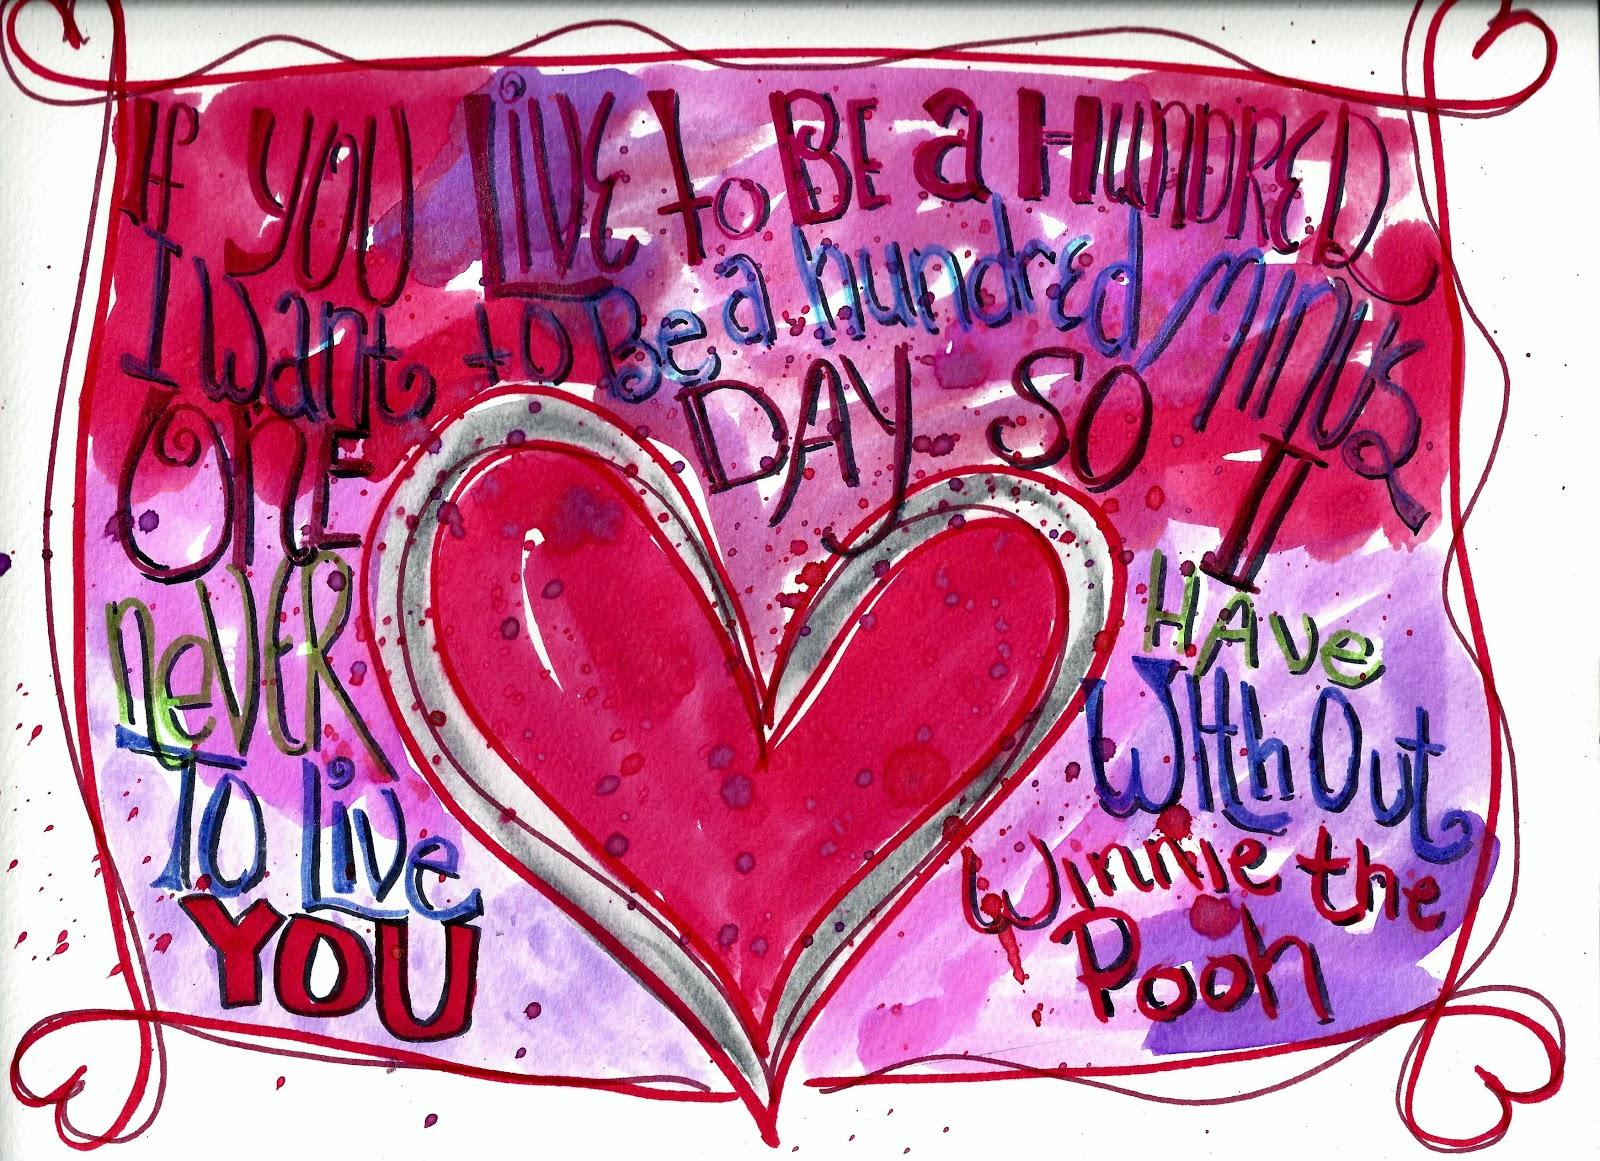 If YOU LivE to BE a HUNDRED
I Want to Be a hundred MINUS
ONE DAY SO II
neVER HAve
To Live WIth Out
YOU Winnie the
Pooh